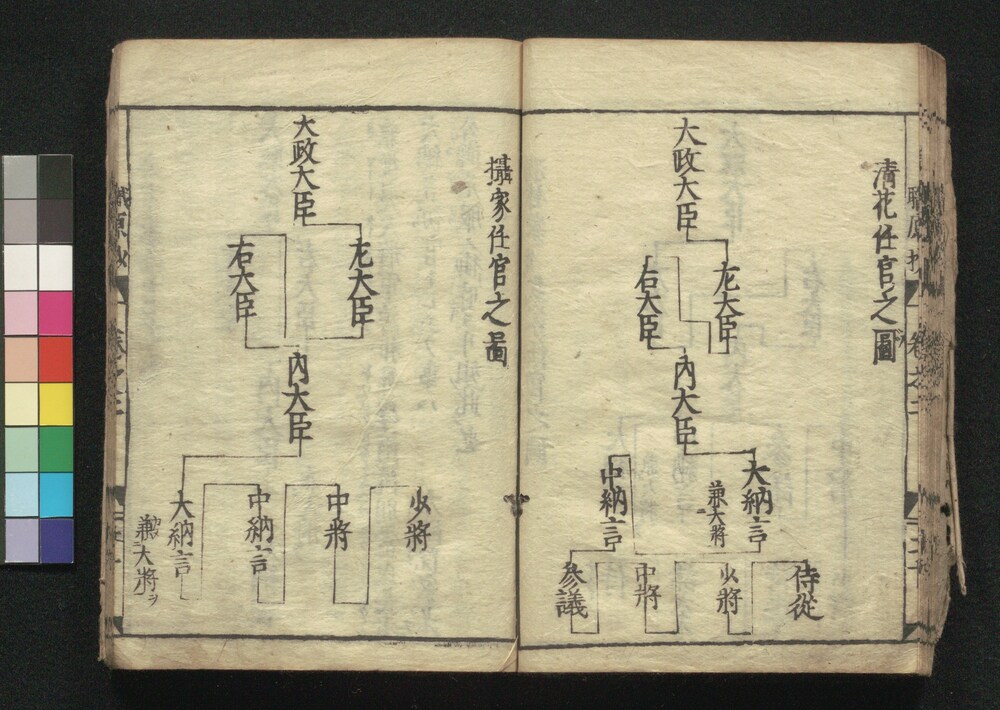 清花任官之圖
大政大臣
左大臣
右大臣
內大臣
大納言
兼大將
中納言
侍從
少將
中將
參議
攝家任官之圖
大政大臣
左大臣
右大臣
內大臣
少將
中將
中納言
大納言
兼大將ヲ
職原抄